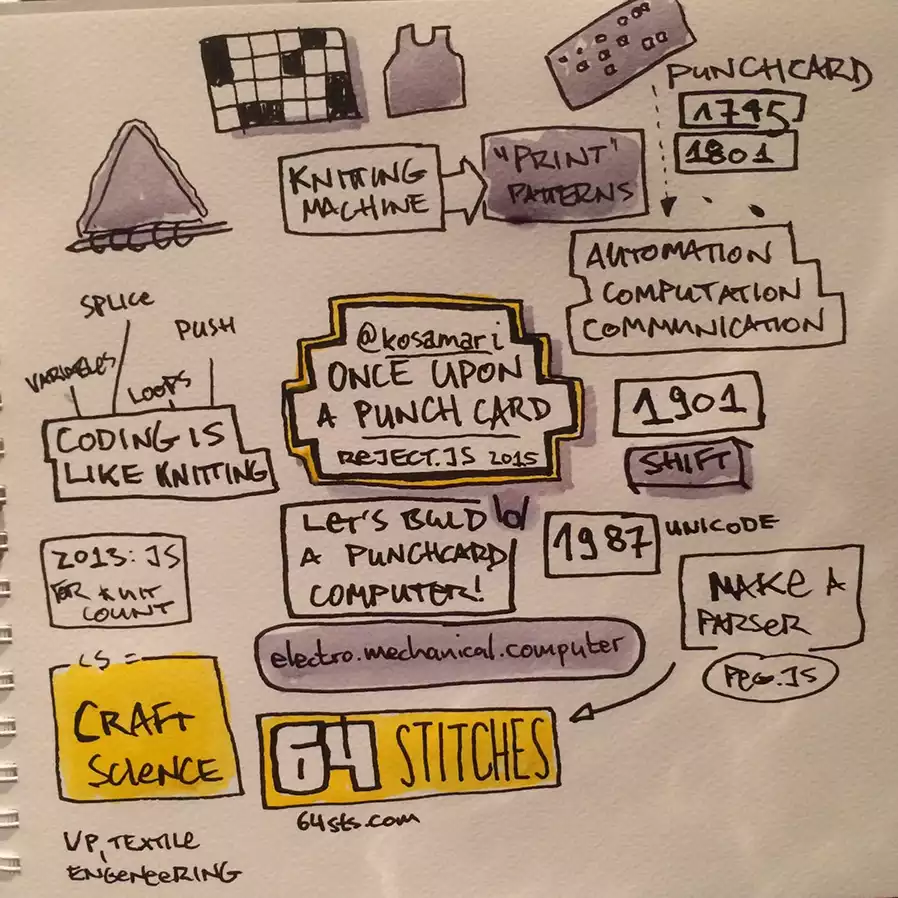 PUNCHCARD
1745
1801
KNITTING
MACHINE
"PRINT"
PATTERNS
AUTOMATION
COMPUTATION
COMMUNICATION
SPLICE
PUSH
VARIABLES
LOOPS
CODING IS
LIKE KNITTING
@kosamari
ONCE UPON
A PUNCH CARD
REJECT.JS 2015
1901
SHIFT
LET'S BUILD
A PUNCHCARD
COMPUTER!
1987
UNICODE
2013: JS
FOR KNIT
COUNT
MAKE A
PARSER
PEG.JS
electro.mechanical.computer
CS =
CRAFT
SCIENCE
64 STITCHES
64sts.com
VP, TEXTILE
ENGENEERING